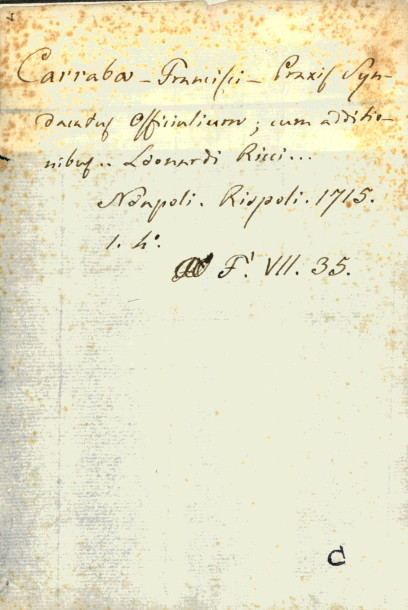 Carraba - Francisci - Praxis Syn-
dacatus Officialium; cum additio-
nibus.. Leonardi Ricci...
Napoli. Rispoli. 1715.
1. 4°.
F. VII. 35.
C